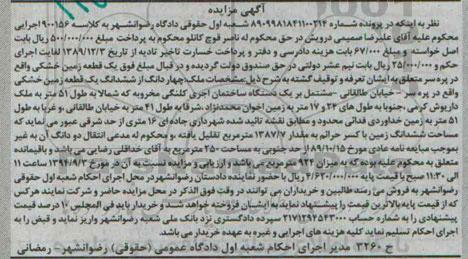 آگهی مزایده
نظر به اینکه در پرونده شماره ۸۹۰۹۹۸۱۸۴۱۱۰۰۲۱۴ شعبه اول حقوقی دادگاه رضوانشهر به کلاسه ۹۰۰۱۵۶ اجرایی
محکوم علیه آقای علیرضا صمیمی درویش در حق محکوم له ناصر قوچ کانلو محکوم به پرداخت مبلغ ۵۰۰/۰۰۰/۰۰۰ ریال بابت
اصل خواسته و مبلغ ۶۷/۰۰۰ بابت هزینه دادرسی و دفتر و پرداخت خسارت تاخیر تادیه از تاریخ ۱۳۸۹/۱۲/۳ لغایت اجرای
حکم و ۲۵/۰۰۰/۰۰۰ ریال بابت نیم عشر دولتی در حق صندوق دولت گردیده و در قبال مبلغ فوق یک قطعه زمین خشکی واقع
در پره سر متعلق به ایشان تعرفه و توقیف گشته به شرح ذیل مشخصات ملک چهار دانگ از ششدانگ یک قطعه زمین خشکی
واقع در پره سر- خیابان طالقانی - مشتمل بر یک دستگاه ساختمان آجری کلنگی مخروبه که شمالا به طول ۵۱ متر به ملک
داریوش کربی ،جنوبا به طول های ۲۴ و ۱۷ متر به زمین اخوان محمدنژاد ،شرقا به طول ۴۱ متر به خیابان طالقانی ،و غربا به طول
۵۱ متر به زمین خداوردی فدائی محدود و مطابق نقشه تائید شده شهرداری جاده ای ۱۶ متری از حد شرقی عبور می نماید که
مساحت ششدانگ زمین با کسر حرائم به مقدار ۱۳۸۷/۷ مترمربع تقلیل یافته و محکوم له مدعی انتقال دو دانگ آن به غیر
بموجب مبایعه نامه عادی مورخ ۸۹/۱۰/۱۵ از حد جنوبی به مساحت ۲۵۰ مترمربع به آقای خداقلی رضایی می باشد و باقیمانده
متعلق به محکوم علیه بوده که به میزان ۹۲۴ مترمربع می باشد و ارزیابی و مزایده نسبت به آن در مورخ ۱۳۹۴/۹/۳ ساعت ۱۱
الی ۱۱:۳۰ صبح با قیمت پایه ۴/۶۲۰/۰۰۰/۰۰۰ ریال با حضور نماینده دادستان رضوانشهر در محل اجرای احکام شعبه اول حقوقی
رضوانشهر به فروش می رسد طالبین و خریداران می توانند در وقت فوق الذکر در محل مزایده حاضر و شرکت نمایند هرکس
که از قیمت پایه بالاترین قیمت را پیشنهاد نماید به ایشان فروخته خواهد شد و خریدار باید فی المجلس ۱۰ درصد قیمت
پیشنهادی را به شماره حساب ۲۱۷۱۲۹۲۵۴۳۰۰۰ سپرده دادگستری نزد بانک ملی شعبه رضوانشهر واریز نماید و قبض را به
اجرای احکام تسلیم نماید کلیه هزینه های اجرایی و غیره به عهده خریدار می باشد.
ح ۳۲۶۰ مدیر اجرای احکام شعبه اول دادگاه عمومی (حقوقی) رضوانشهر- رمضانی